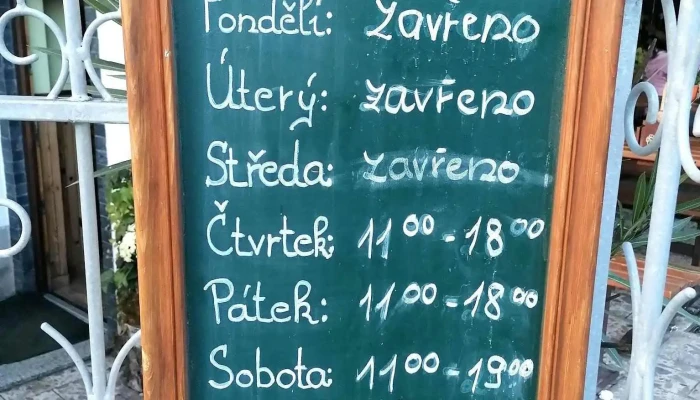 Pondělí: zavřeno
Úterý: zavřeno
Středa: zavřeno
Čtvrtek: 11⁰⁰ - 18⁰⁰
Pátek: 11⁰⁰ - 18⁰⁰
Sobota: 11⁰⁰ - 19⁰⁰